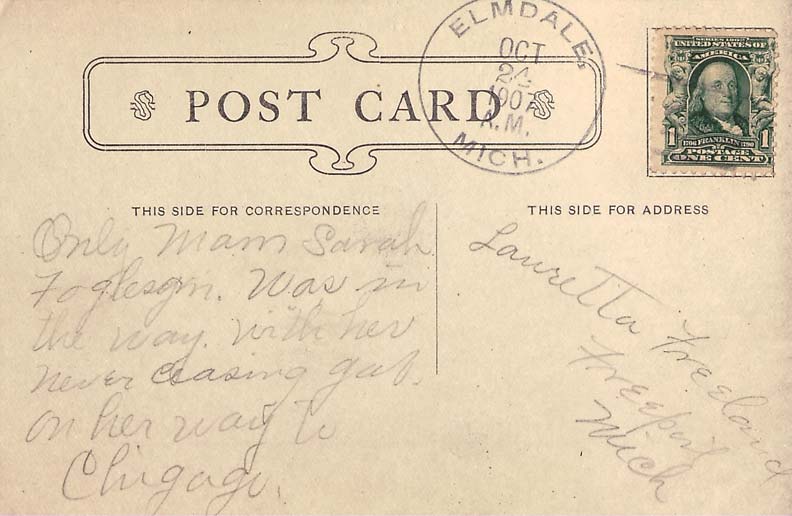 ELMDALE,
OCT
24
1907
A.M.
MICH.
POST CARD
SERIES 1902
UNITED STATES OF
AMERICA
1 1706 FRANKLIN 1790 1
POSTAGE
ONE CENT
THIS SIDE FOR CORRESPONDENCE
Only Mam Sarah
Foglesgn. Was in
the way. with her
never ceasing gab.
on her way to
Chigago.
THIS SIDE FOR ADDRESS
Lauretta Freeland
Freeport
Mich